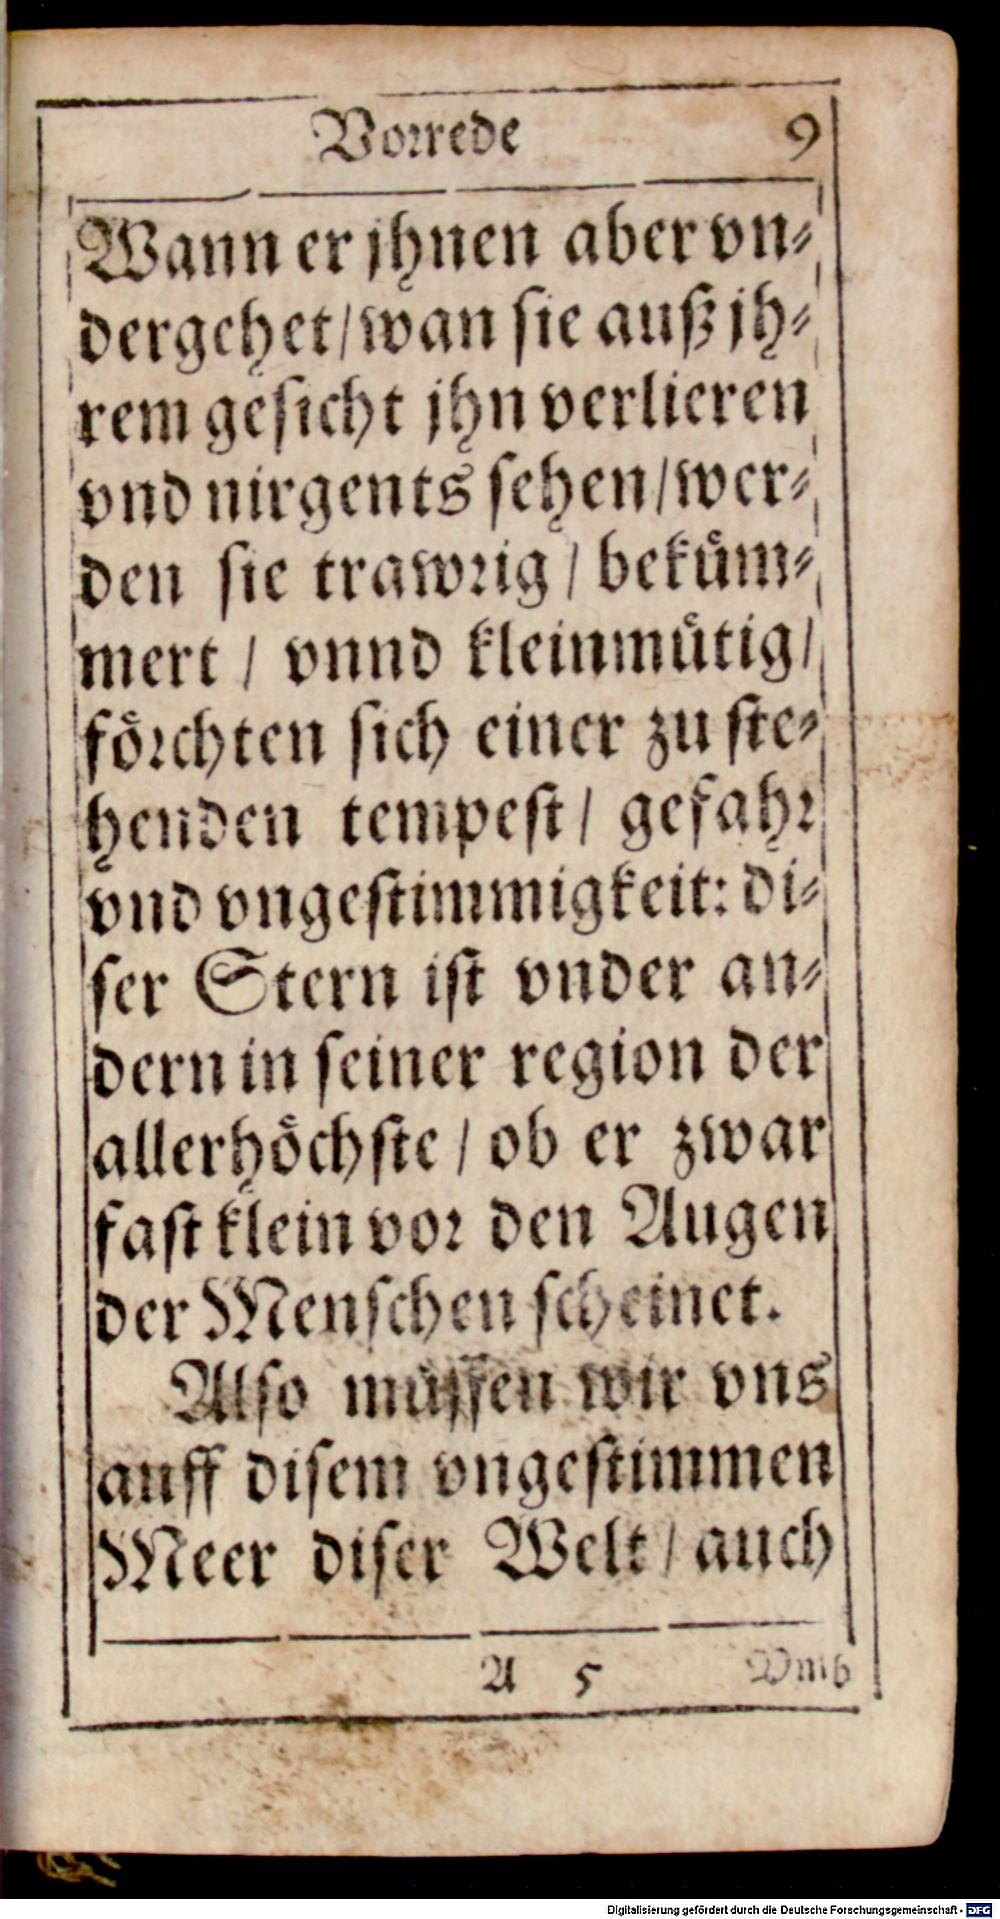 Vorrede 9
Wann er jhnen aber vn-
dergehet/wan sie auß jh-
rem gesicht jhn verlieren
vnd nirgents sehen/wer-
den sie trawrig / bekuͤm-
mert / vnnd kleinmuͤtig/
foͤrchten sich einer zu ste-
henden tempest / gefahr
vnd vngestimmigkeit: di-
ser Stern ist vnder an-
dern in seiner region der
allerhoͤchste / ob er zwar
fast klein vor den Augen
der Menschen scheinet.
Also muͤssen wir vns
auff disem vngestimmen
Meer diser Welt / auch
A 5 Vmb
Digitalisierung gefördert durch die Deutsche Forschungsgemeinschaft - DFG